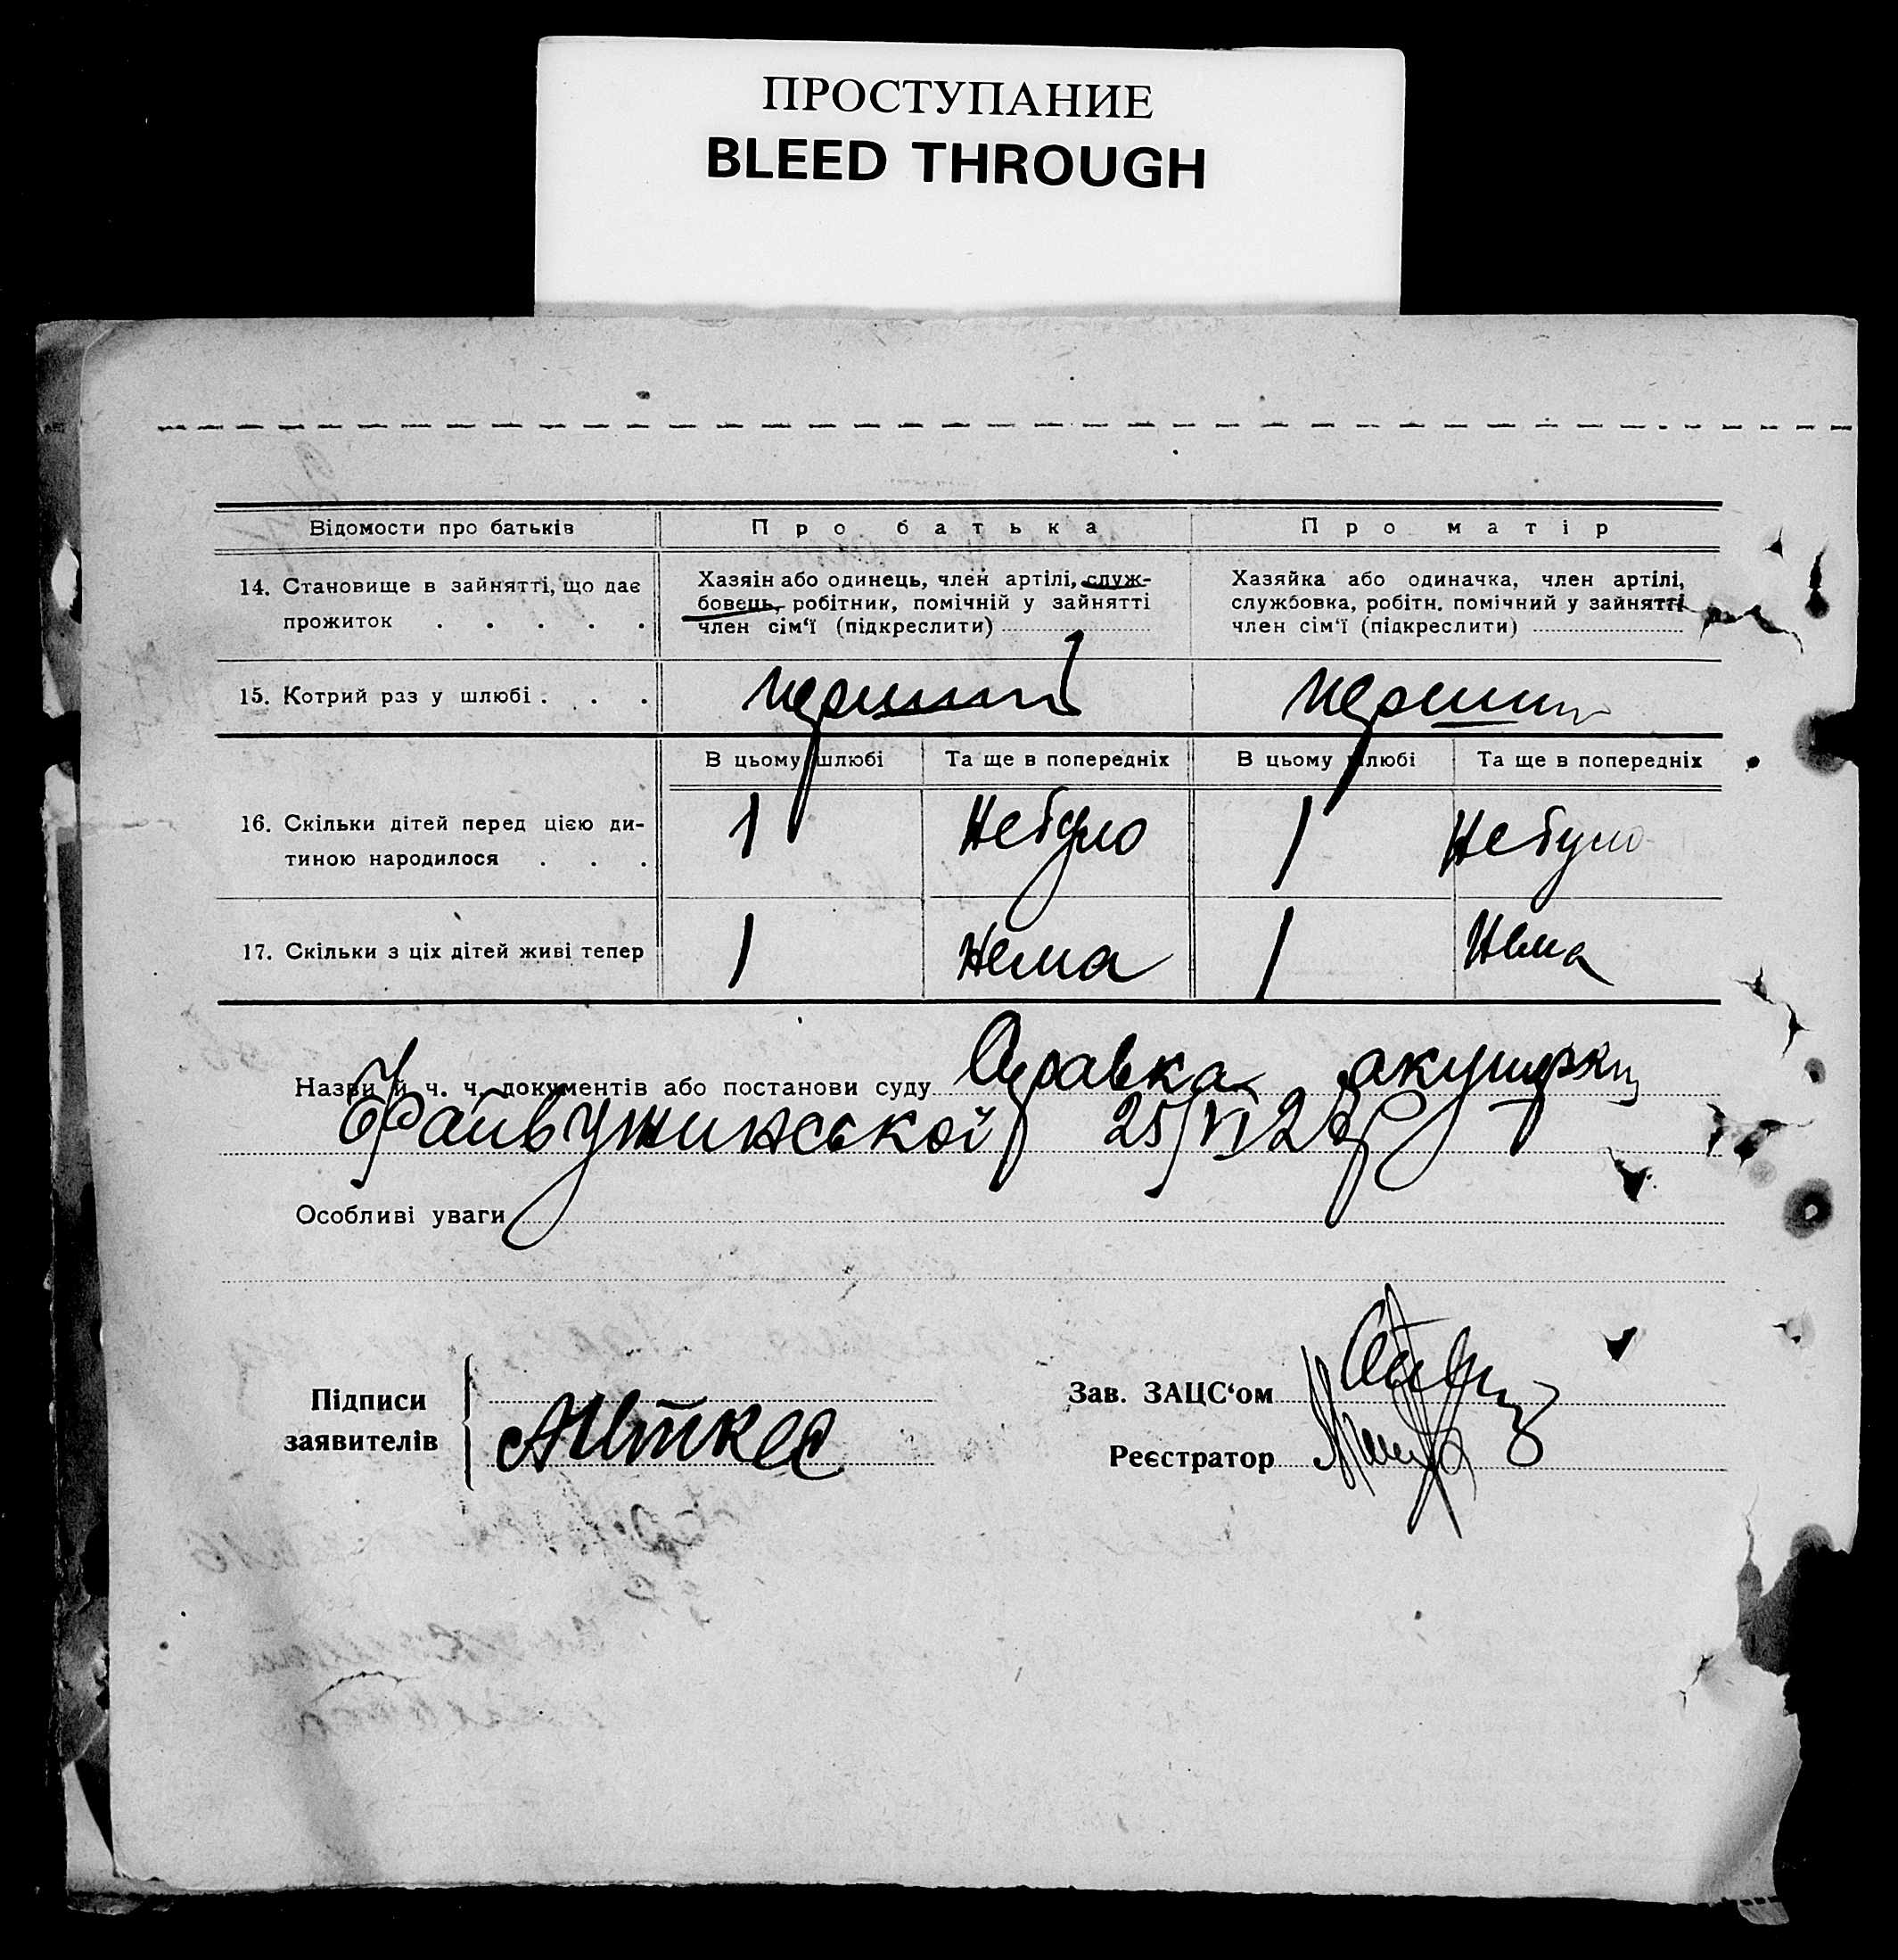 ПРОСТУПАНИЕ
BLEED THROUGH
Відомости про батьків Про батька Про матір
14. Становище в зайнятті, що дає прожиток . . . . .
Хазяїн або одинець, член артілі, служ-
бовець, робітник, помічній у зайнятті
член сім‘ї (підкреслити)
Хазяйка або одиначка, член артілі,
службовка, робітн. помічний у зайнятті
член сім‘ї (підкреслити)
15. Котрий раз у шлюбі . . . перший перший
В цьому шлюбі Та ще в попередніх В цьому шлюбі Та ще в попередніх
16. Скільки дітей перед цією ди-
тиною народилося . . . 1 Небуло 1 Небуло
17. Скільки з ціх дітей живі тепер 1 Нема 1 Нема
Назви й ч. ч. документів або постанови суду Справка акушерки
25/VI
Особливі уваги
Підписи
заявителів
Зав. ЗАЦС‘ом
Реєстратор